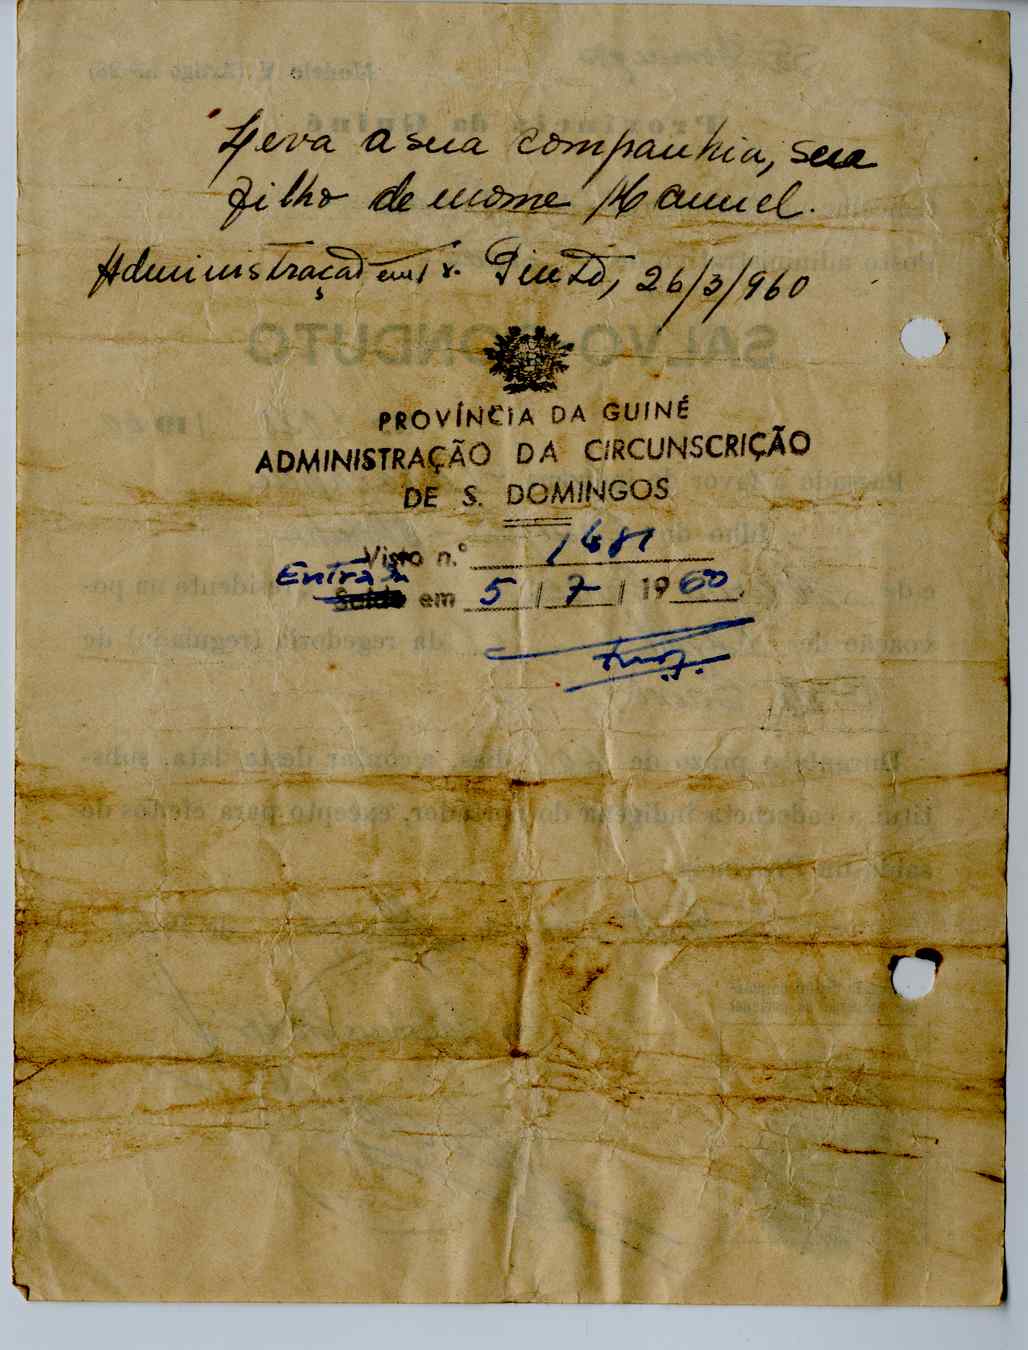 Leva a sua companhia, seu
filho de nome Manuel.
Administração em T. Pinto, 26/3/960
PROVÍNCIA DA GUINÉ
ADMINISTRAÇÃO DA CIRCUNSCRIÇÃO
DE S. DOMINGOS
Visto n.º 1481
Entrada
Saída em 5 / 7 / 1960